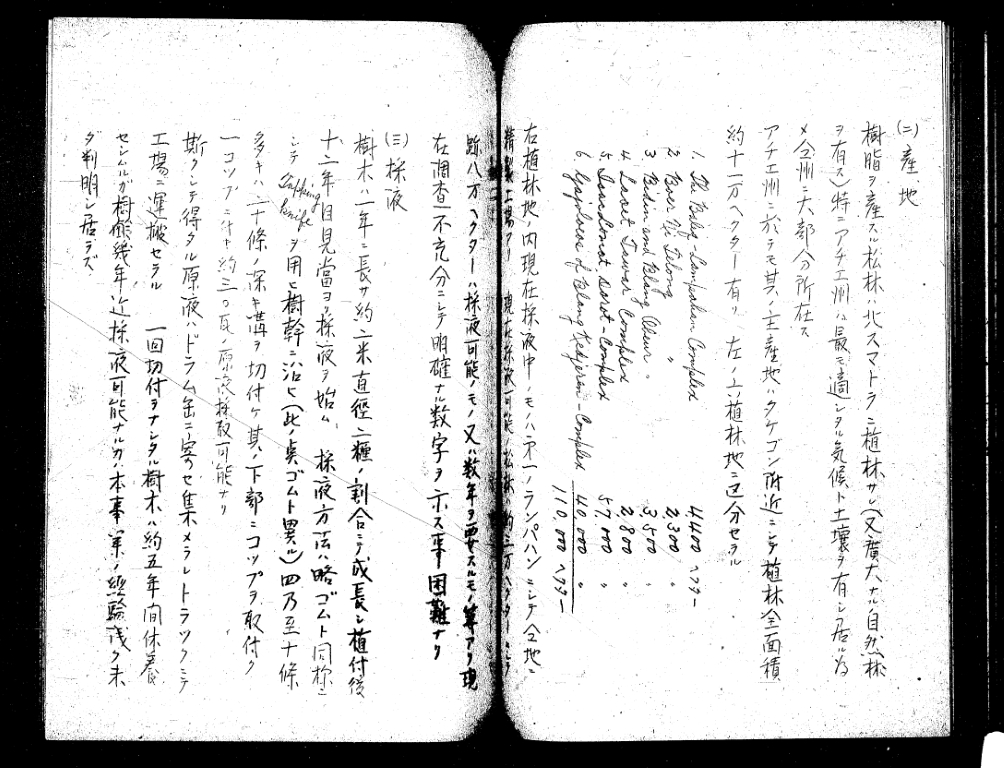 (二) 産地
樹脂ヲ産スル松林ハ北スマトラニ植林サレ(又廣大ナル自然林
ヲ有ス)特ニアチエ州ハ最モ適シタル気候ト土壌ヲ有シ居ル為
メ仝州ニ大部分所在ス
アチエ州ニ於テモ其ノ主産地ハタケゴン附近ニシテ植林全面積
約十一万ヘクター有リ 左ノ六植林地ニ区分セラル
1. The Baleq-Lampahan Complex 4400 ヘクター
2. Boer Ni Telong 〃 2300 〃
3. Bidin and Blang 〃 3500 〃
4. Laret Tawar Complex 2800 〃
5. Isaq Complex 57,000 〃
6. Gajoloeos of Blang Kedjeren-Complex 40,000 〃
110,000 ヘクター
右植林地ノ内現在採液中ノモノハ第一ノランパハンニシテ仝地ニ
精製工場アリ 現在採液可能ノ松林ハ約三万ヘクターニシテ
八万ヘクターハ採液可能ノモノ又ハ数年ヲ要スルモノ等アリ現
在調査不充分ニシテ明確ナル数字ヲ示ス事困難ナリ
(三) 採液
樹木ハ一年ニ長サ約一米直徑二糎ノ割合ニテ成長シ植付後
十二年目見當ヨリ採液ヲ始ム 採液方法ハ略ゴムト同様ニ
シテ Tapping knife ヲ用ヒ樹幹ニ沿ヒ(此ノ点ゴムト異ル)四乃至十條
多キハ二十條ノ深キ溝ヲ切付ケ其ノ下部ニコップヲ取付ク
一コップニ付キ約三〇瓦ノ原液採取可能ナリ
斯クシテ得タル原液ハドラム缶ニ寄セ集メラレトラックニテ
工場ニ運搬セラル 一回切付ヲナシタル樹木ハ約五年間休養
セシムルガ樹齢幾年迄採液可能ナルカハ本事業ノ経験浅ク未
ダ判明シ居ラズ